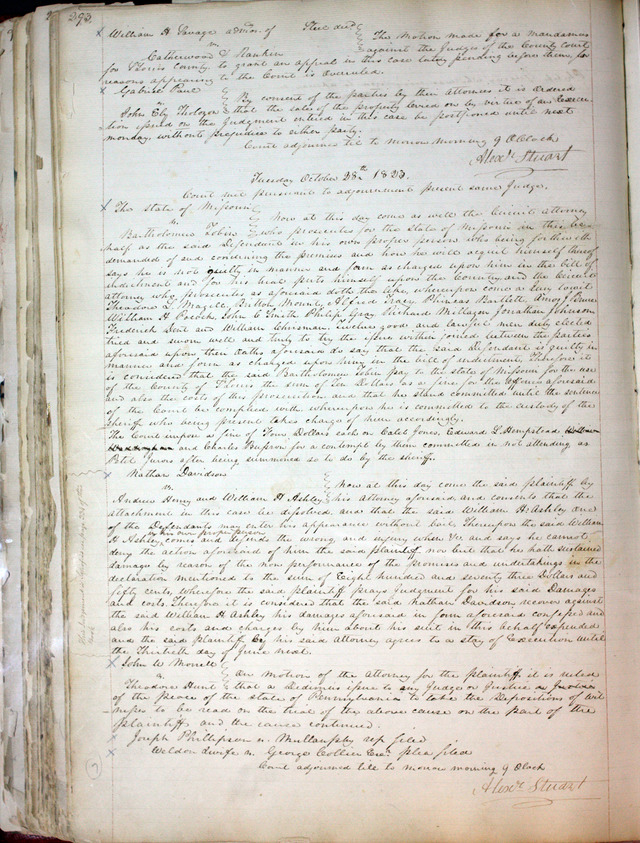 293
William H. Savage admor. of decd
vs
Catherwood & Rankin
This Motion made for a mandamus
against the Judges of the County Court
for St Louis County to grant an appeal in this case lately pending before them, for
reasons appearing to the Court is overruled.
Gabriel Paul
vs
John Ely Tholozan
By consent of the parties by their attornies it is ordered
that the sale of the property levied on by virtue of an execu-
tion issued on the Judgment entered in this case be postponed until next
monday, without prejudice to either party.
Court adjourned til to morrow morning 9 OClock
Alexr. Stuart
Tuesday October 28th 1823.
Court met pursuant to adjournment present same Judge.
The State of Missouri
vs.
Bartholomew Tobin
Now at this day come as well the Circuit attorney
who prosecutes for the State of Missouri in this be-
half as the said Defendant in his own proper person who being forthwith
demanded of and concerning the premises and how he will acquit himself thereof
says he is not guilty in manner and form as charged upon him in the bill of
indictment and for his trial puts himself upon the Country and the Circuit
attorney who prosecutes as aforesaid doth the like, whereupon come a Jury to wit
Theodore L. Magill, Bilton Mount, Alfred Tracy, Phineas Bartlett, Amos J.
William H Pocock, John C Smith Philip Gray, Richard Milligan Jonathan Johnson
Frederick Dent and William Chrisman. Twelve good and lawful men duly elected
tried and sworn well and truly to try the issue within joined between the parties
aforesaid upon their oaths aforesaid do say that the said defendant is guilty in
manner and form as charged upon him in the bill of indictment, Therefore it
is considered that the said Bartholomew Tobin pay to the State of Missouri for the use
of the County of St Louis the sum of Ten Dollars as a fine for the offence aforesaid
and also the costs of this prosecution and that he stand committed until the sentence
of the Court be complied with. whereupon he is committed to the custody of the
Sheriff who being present takes charge of him accordingly.
The Court impose a fine of Four Dollars each on Caleb Jones, Edward L Hempstead
and Charles for a contempt by them committed in not attending as
Petit Jurors after being summoned so to do by the sheriff.
Nathan Davidson
vs.
Andrew Henry and William H Ashley
Now at this day come the said plaintiff by
his attorney aforesaid and consents that the
attachment in this case be dissolved, and that the said William H. Ashley one
of the Defendants may enter his appearance without bail. Thereupon the said William
in his own proper person
H Ashley comes and defends the wrong and injury when &c and says he cannot
deny the action aforesaid of him the said plaintiff nor but that he hath sustained
damage by reason of the non performance of the promises and undertakings in the
declaration mentioned to the sum of Eight hundred and seventy three Dollars and
fifty cents, Wherefore the said plaintiff prays Judgment for his said Damages
and costs. Therefore it is considered that the said Nathan Davidson recover against
the said William H Ashley his damages aforesaid in form aforesaid confessed and
also his costs and charges by him about his suit in this behalf expended
and the said plaintiff by his said attorney agrees to a stay of Execution until
the Thirtieth day of June next.
John W Morrell
vs.
Theodore Hunt
On Motion of the attorney for the plaintiff it is ruled
that a Dedimus issue to any Judge or Justice or Justices
of the peace of the State of Pennsylvania to take the Depositions of wit
nesses to be read on the trial of the above cause on the part of the
plaintiff and the cause continued.
Joseph Phillipson v. Mullanphy rep filed
Weldon v. George Collier Exr. plea filed
Court adjourned till to morrow morning 9 Clock
Alexr. Stuart